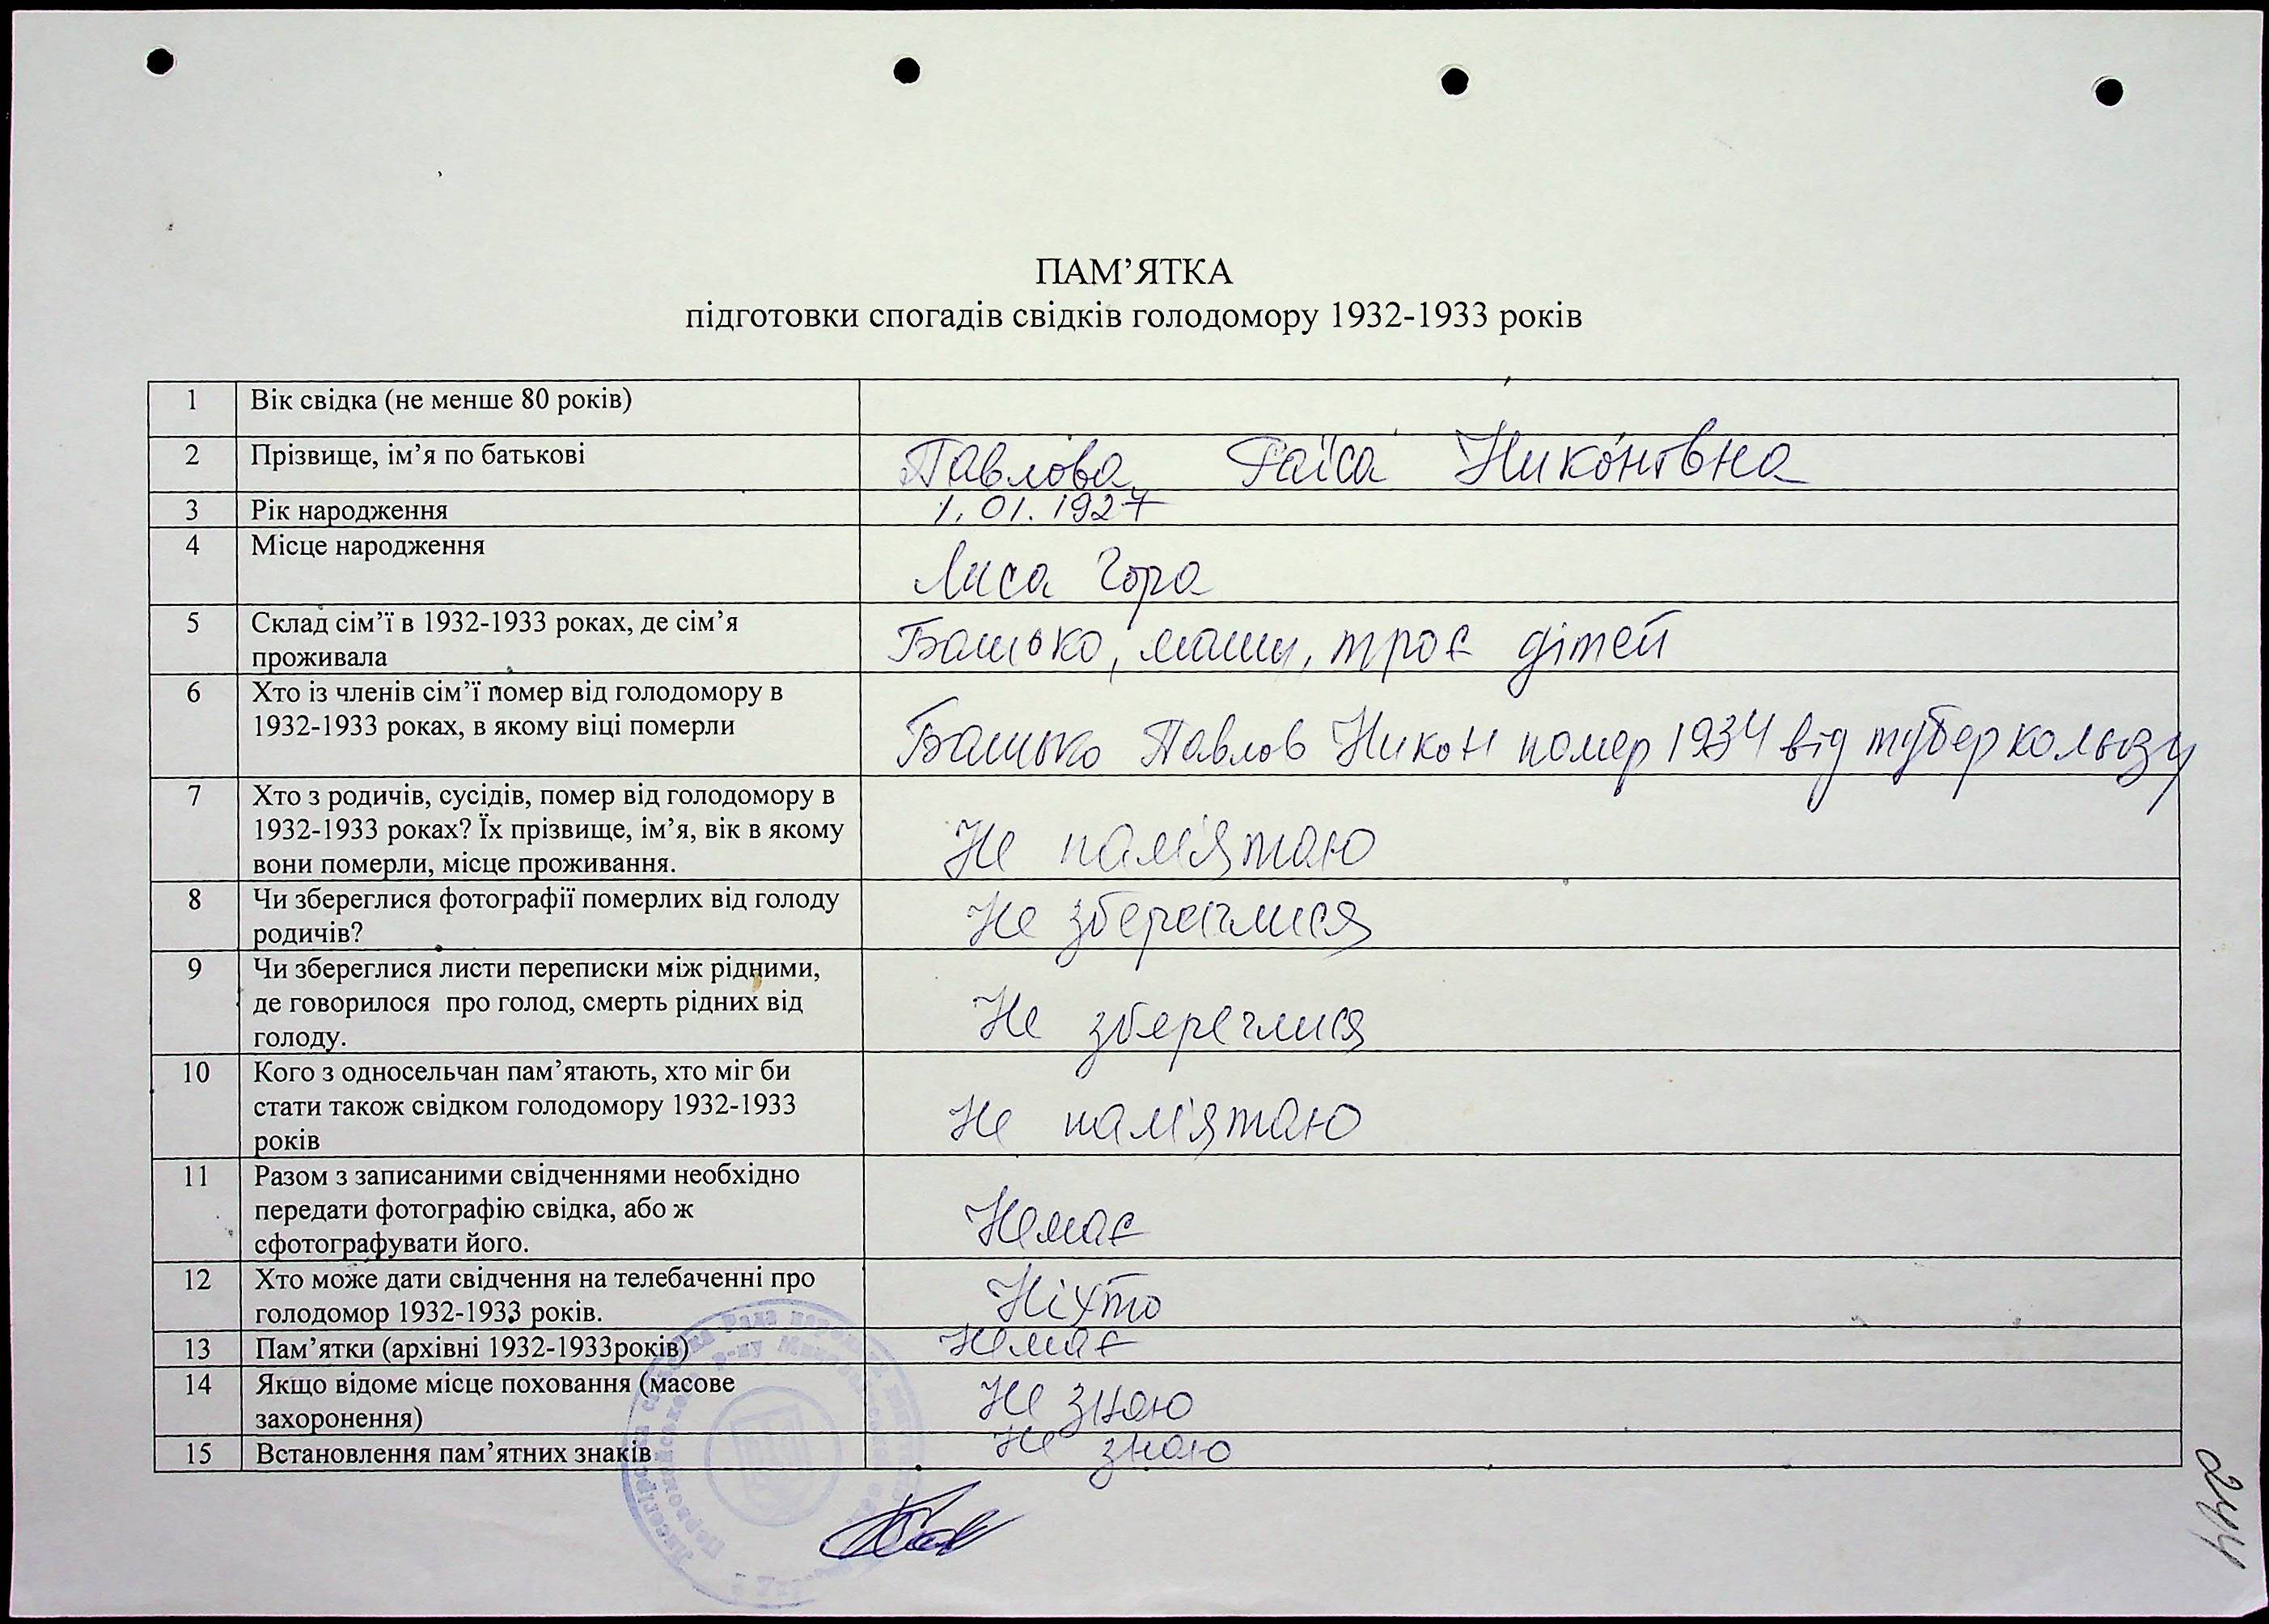 ПАМ’ЯТКА
підготовки спогадів свідків голодомору 1932-1933 років
1 Вік свідка (не менше 80 років)
2 Прізвище, ім’я по батькові Павлова Раїса Никонівна
3 Рік народження 1.01.1927
4 Місце народження Лиса Гора
5 Склад сім’ї в 1932-1933 роках, де сім’я
проживала Батько, мати, троє дітей
6 Хто із членів сім’ї помер від голодомору в
1932-1933 роках, в якому віці померли Батько Павлов Никон помер 1934 від туберкользу
7 Хто з родичів, сусідів, помер від голодомору в
1932-1933 роках? Їх прізвище, ім’я, вік в якому
вони померли, місце проживання. Не пам'ятаю
8 Чи збереглися фотографії померлих від голоду
родичів? Не збереглися
9 Чи збереглися листи переписки між рідними,
де говорилося про голод, смерть рідних від
голоду. Не збереглися
10 Кого з односельчан пам’ятають, хто міг би
стати також свідком голодомору 1932-1933
років Не пам'ятаю
11 Разом з записаними свідченнями необхідно
передати фотографію свідка, або ж
сфотографувати його. Немає
12 Хто може дати свідчення на телебаченні про
голодомор 1932-1933 років. Ніхто
13 Пам’ятки (архівні 1932-1933років) Немає
14 Якщо відоме місце поховання (масове
захоронення) Не знаю
15 Встановлення пам’ятних знаків Не знаю
244